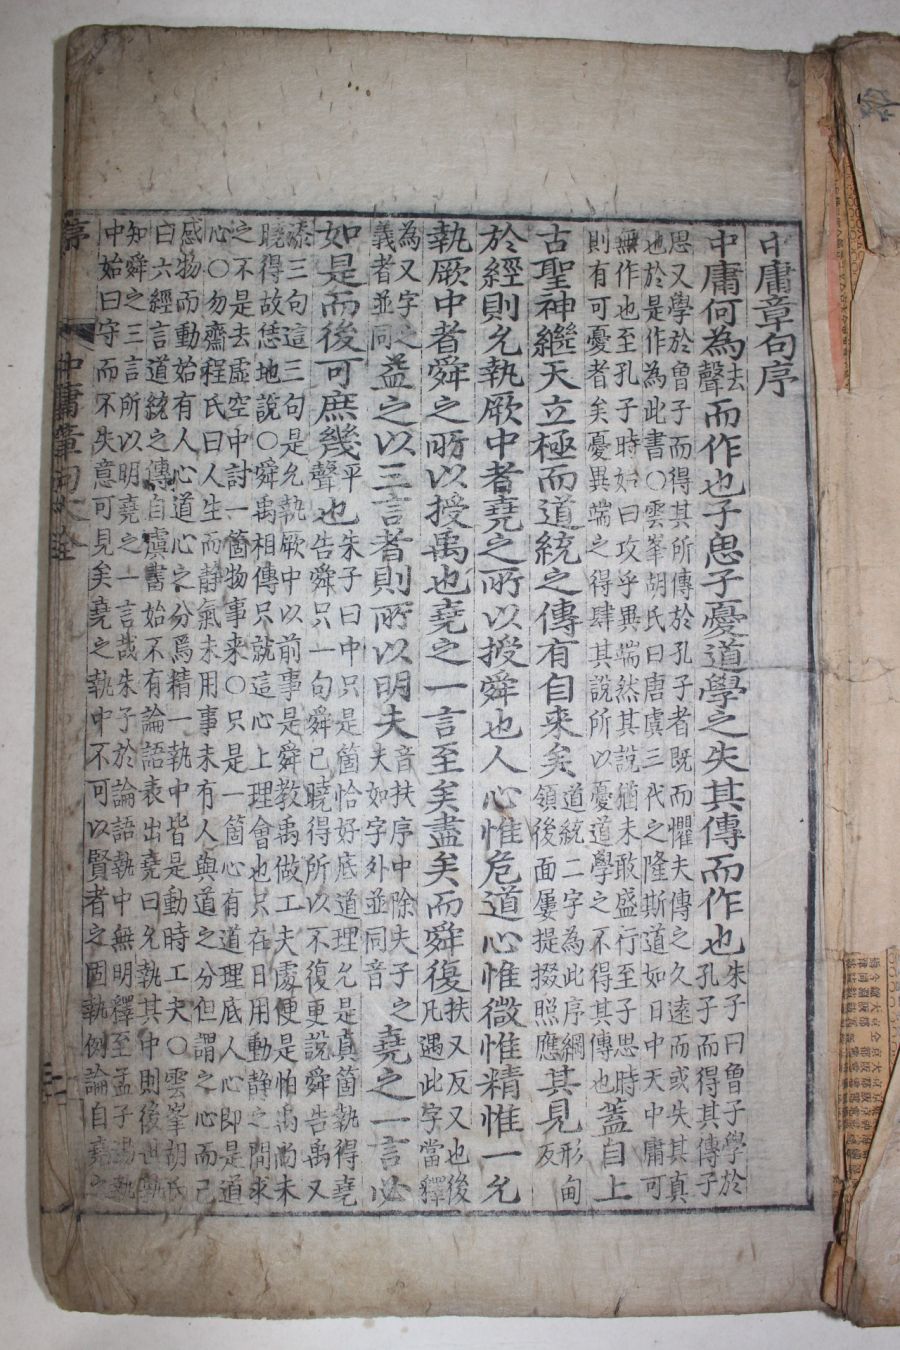 中庸章句序
中庸何為去聲而作也子思子憂道學之失其傳而作也朱子曰曾子學於
孔子而得其傳子
思又學於曾子而得其所傳於孔子者既而懼夫傳之久遠而或失其真
也於是作為此書○雲峯胡氏曰唐虞三代之隆斯道如日中天中庸可
無作也至孔子時始曰攻乎異端然其說猶未敢盛行至子思時
則有可憂者矣憂異端之得肆其說所以憂道學之不得其傳也蓋自上
古聖神繼天立極而道統之傳有自来矣道統二字為此序綱
領後面屢提掇照應其見形甸反
於經則允執厥中者堯之所以授舜也人心惟危道心惟微惟精惟一允
執厥中者舜之所以授禹也堯之一言至矣盡矣而舜復扶又反又也後
凡遇此字當釋
為又字之
義者並同益之以三言者則所以明夫音扶序中除夫子之
夫如字外並同音堯之一言必
如是而後可庶幾平聲也朱子曰中只是箇恰好底道理允是真箇執得堯
告舜只一句舜已曉得所以不復更說舜告禹又
添三句這三句是允執厥中以前事是舜教禹做工夫處便是怕禹尚未
曉得故恁地說○舜禹相傳只就這心上理會也只在日用動靜之間求
之不是去虛空中討一箇物事来○只是一箇心有道理底人心即是道
心○勿齋程氏曰人生而靜氣未用事未有人與道之分但謂之心而已
感物而動始有人心道心之分焉精一執中皆是動時工夫○雲峯胡氏
曰六經言道統之傳自虞書始不有論語表出堯曰允執其中則後世孰
知舜之三言所以明堯之一言哉朱子於論語執中無明釋至孟子湯執
中始曰守而不失意可見矣堯之執中不可以賢者之固執例論自堯之
序
中庸章句大全